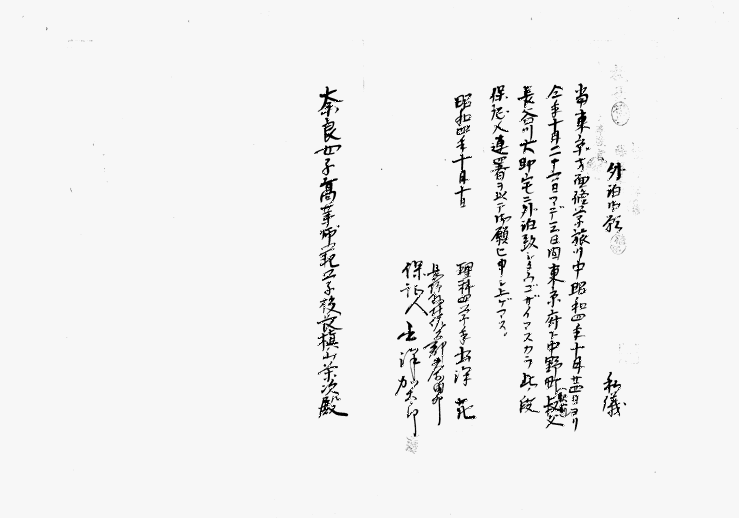 外泊御願
私儀
当東京方面修学旅行中昭和四年十月廿四日ヨリ
仝年十月二十六日マデ三日間東京府下中野町叔父
長谷川大助宅ニ外泊致シタウゴザイマスカラ此ノ段
保証人連署ヲ以テ御願ヒ申シ上ゲマス。
昭和四年十月十日
理科四学年
保証人
奈良女子高等師範学校長槙山栄次殿